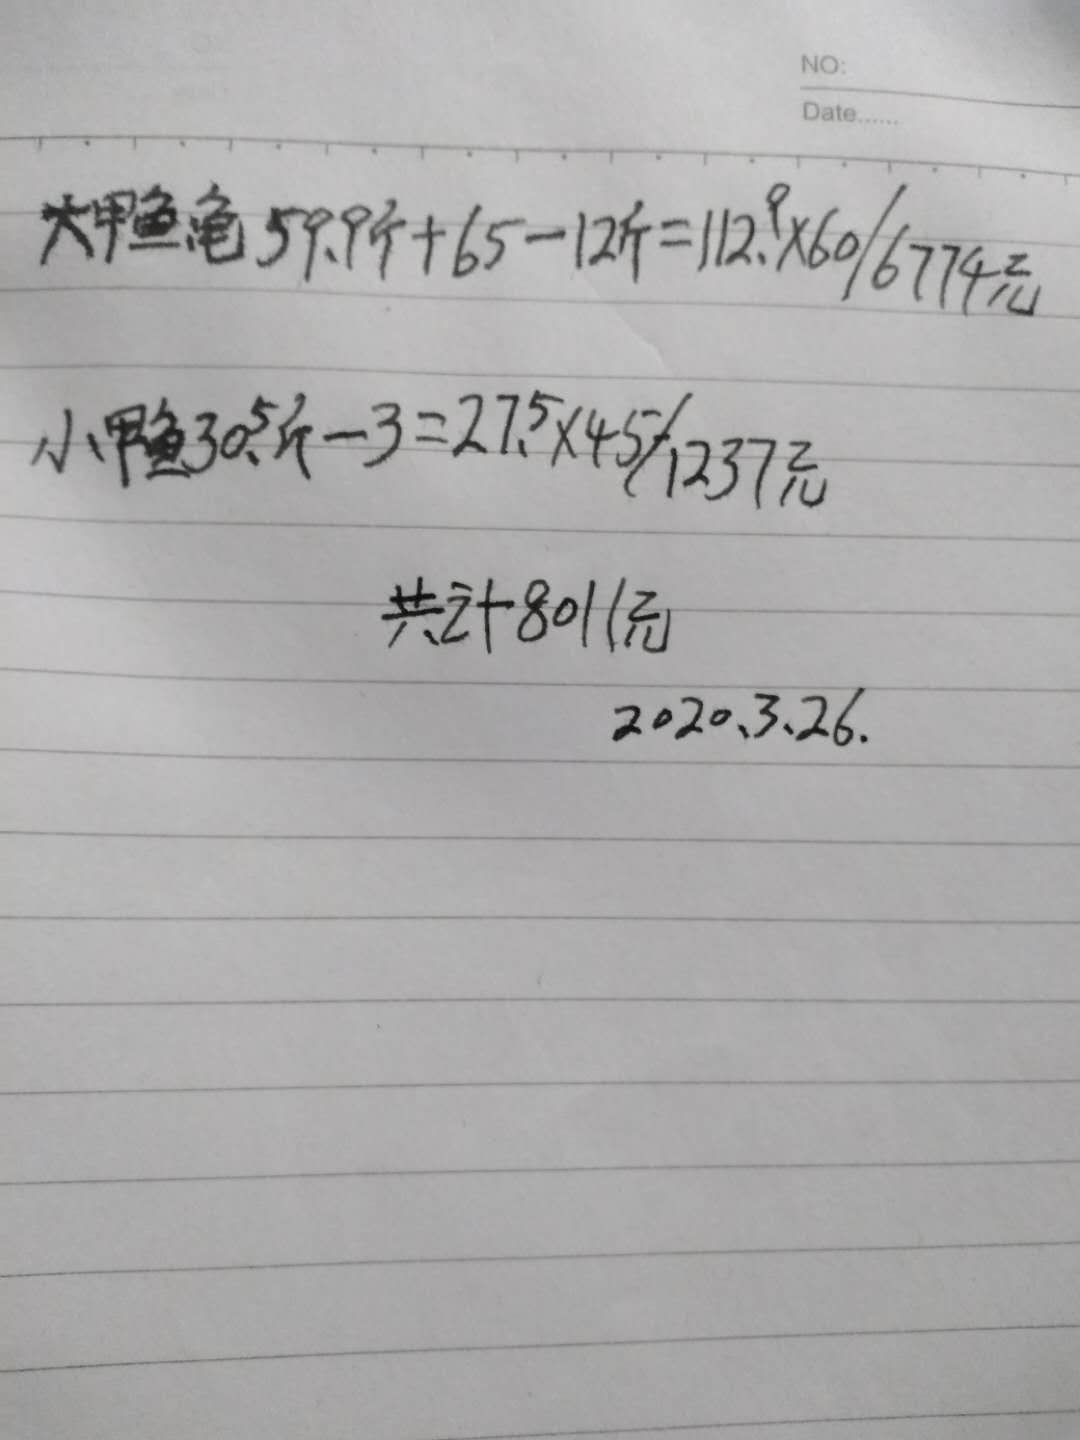 NO:
Date......
大甲鱼龟59.9斤+65-12斤=112.9×60/6774元
小甲鱼30.5斤-3=27.5×45/1237元
共计8011元
2020.3.26.